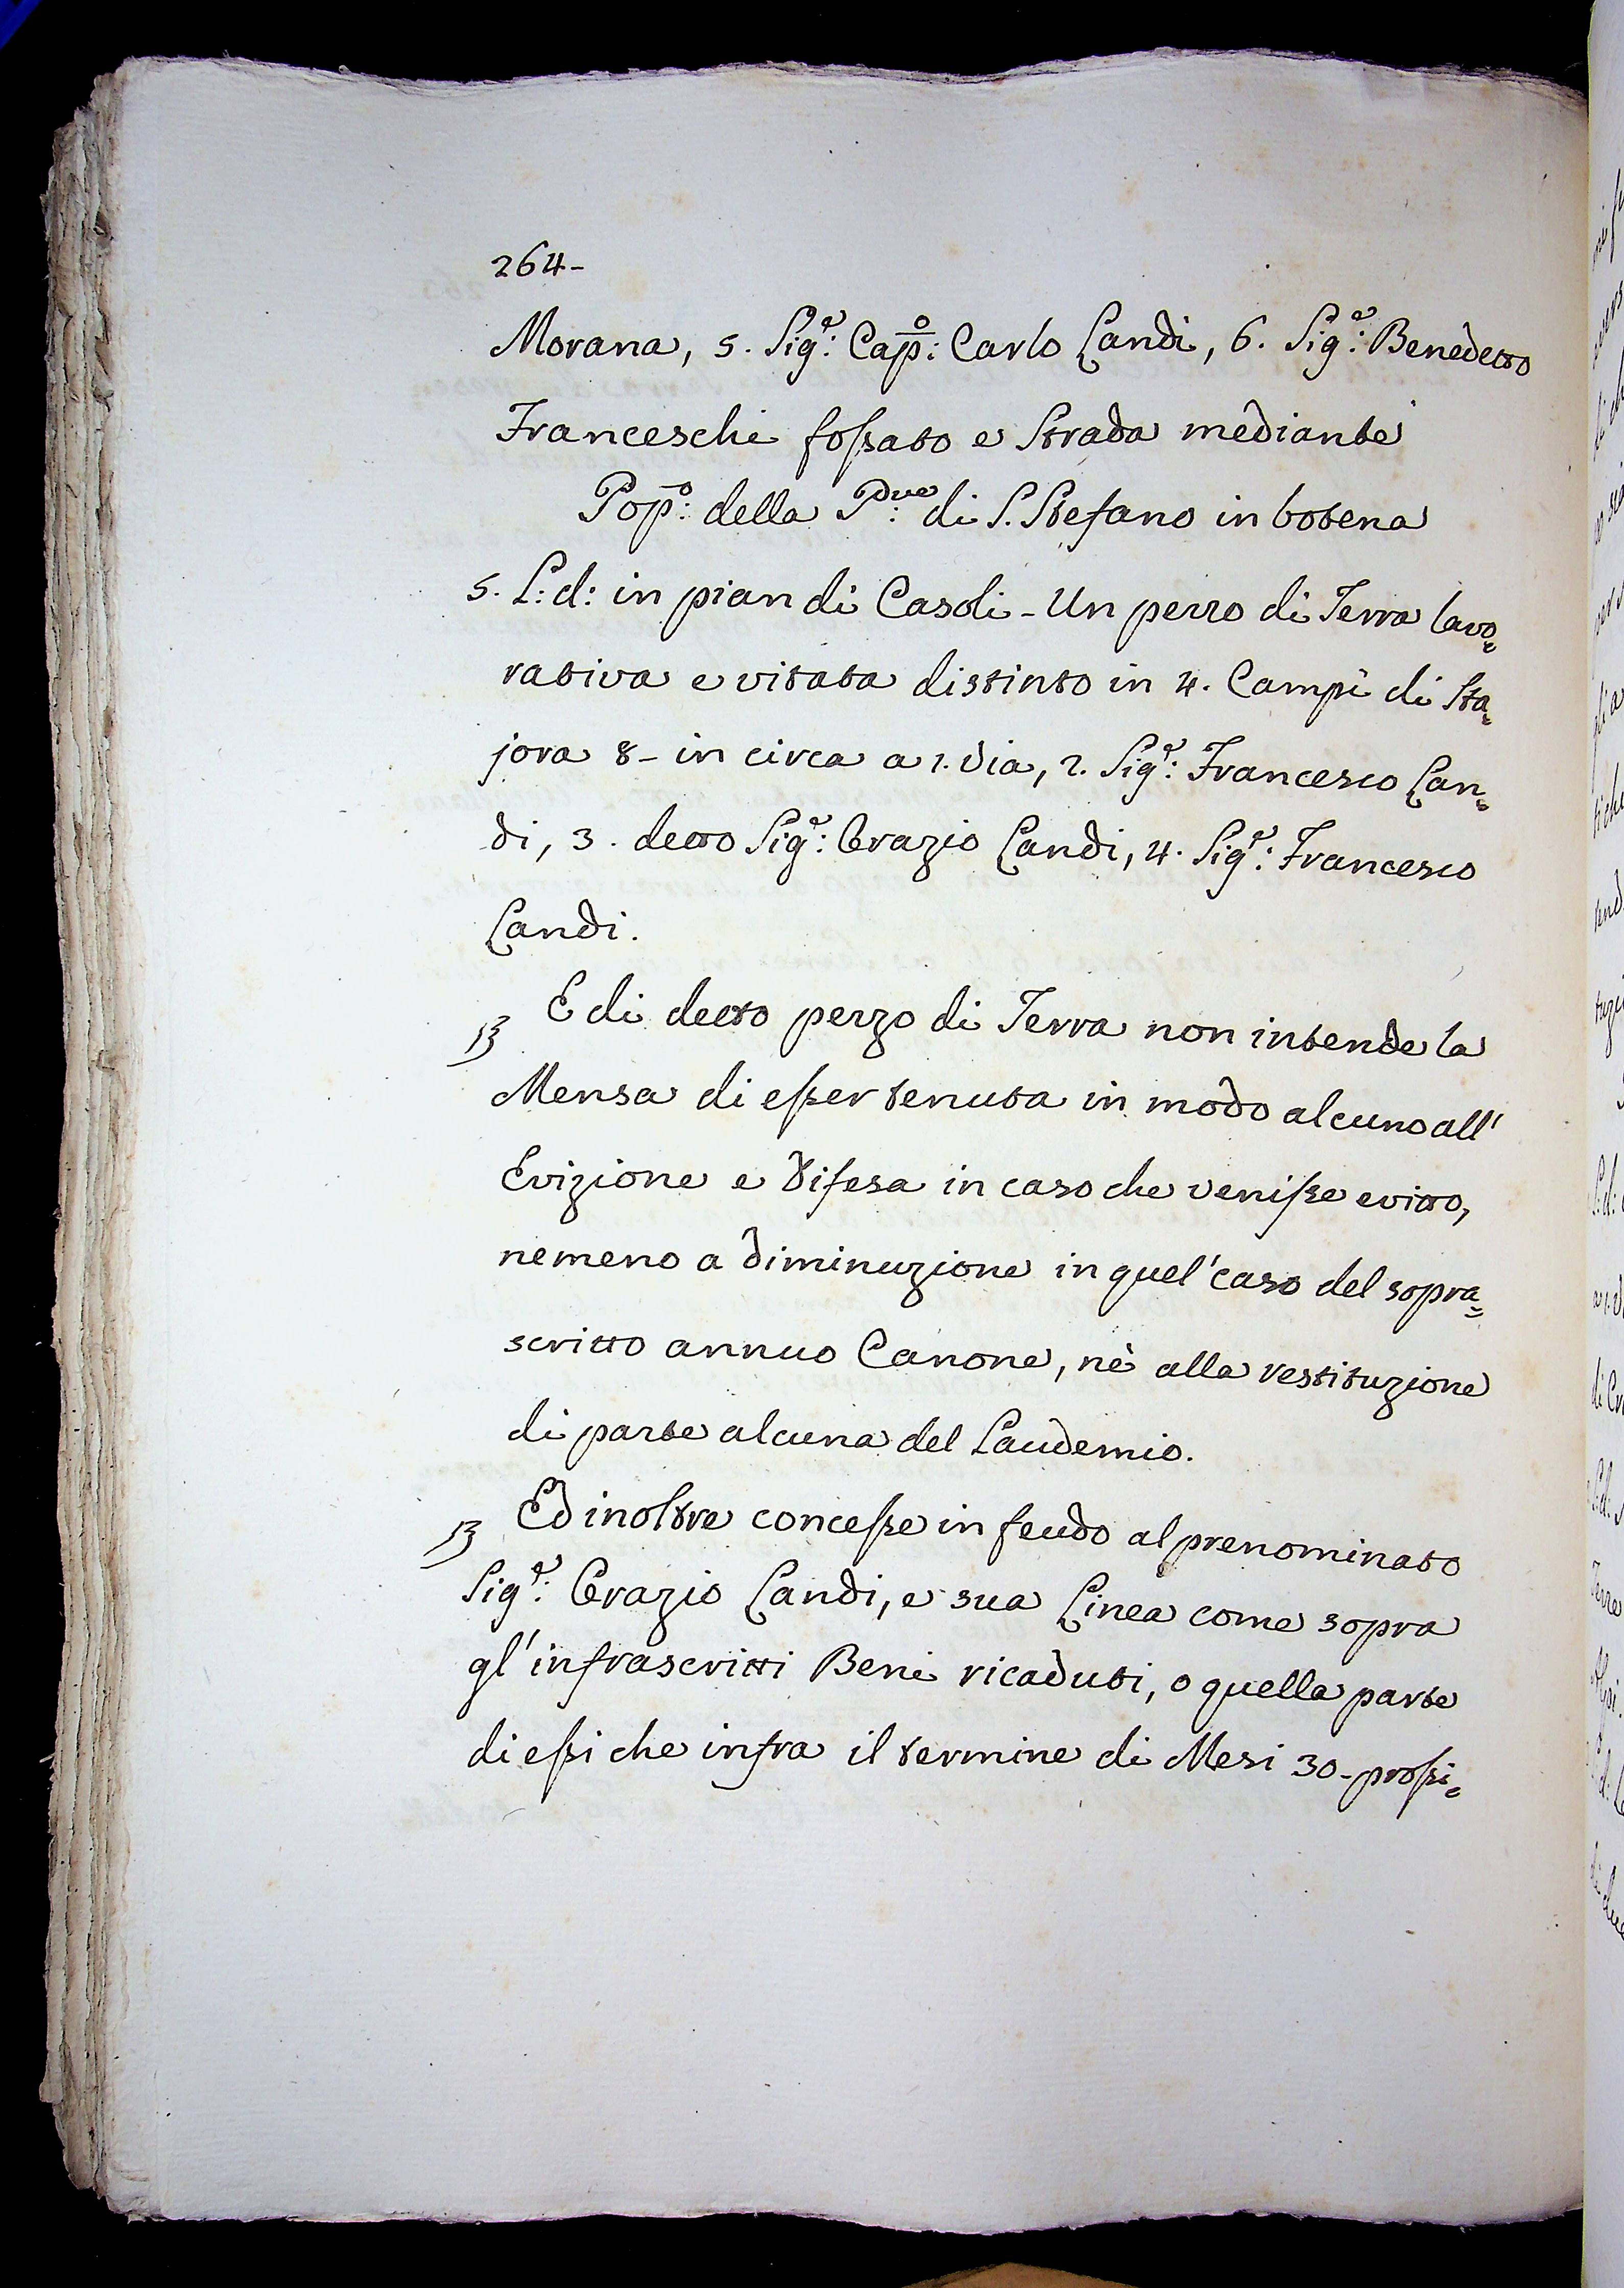 264-
Morana, 5. Sig.e: Cap.o: Carlo Landi, 6. Sig.e: Benedetto
Franceschi fossato e Strada mediante
Pop.o: della P.ve: di S. Stefano in botena
5. L: d: in pian di Casoli - Un pezzo di Terra lavo=
rativa e vitata distinto in 4. Campi di Sta=
jora 8- in circa a 1. via, 2. Sig.e: Francesco Lan=
di, 3. detto Sig.e: Orazio Landi, 4. Sig.e: Francesco
Landi.
13 E di detto pezzo di Terra non intende la
Mensa di esser tenuta in modo alcuno all'
Evizione e difesa in caso che venisse evitto,
nemeno a diminuzione in quel' caso del sopra=
scritto annuo Canone, nè alla restituzione
di parte alcuna del Laudemio.
13 Ed inoltre concesse in feudo al prenominato
Sig.e: Orazio Landi, e sua Linea come sopra
gl'infrascritti Beni ricaduti, o quella parte
di essi che infra il termine di Mesi 30- prossi=